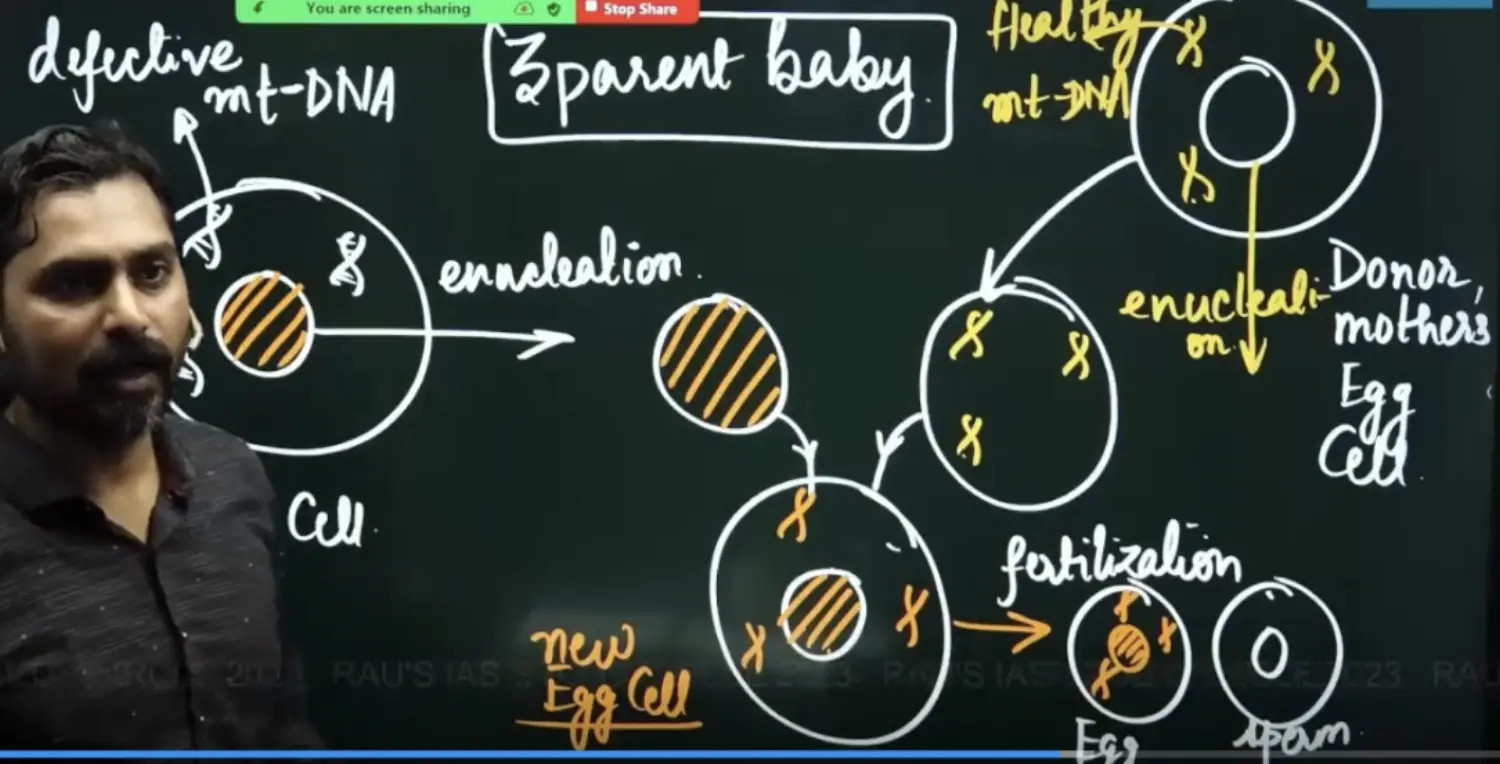 You are screen sharing
Stop Share
defective
mt-DNA
3 parent baby.
Healthy
mt-DNA
enucleation.
enucleati-
on.
Donor,
mothers
Egg
Cell.
Cell.
fertilization
new
Egg Cell
Egg
sperm
RAU'S IAS
2023
RAU'S IAS
2023